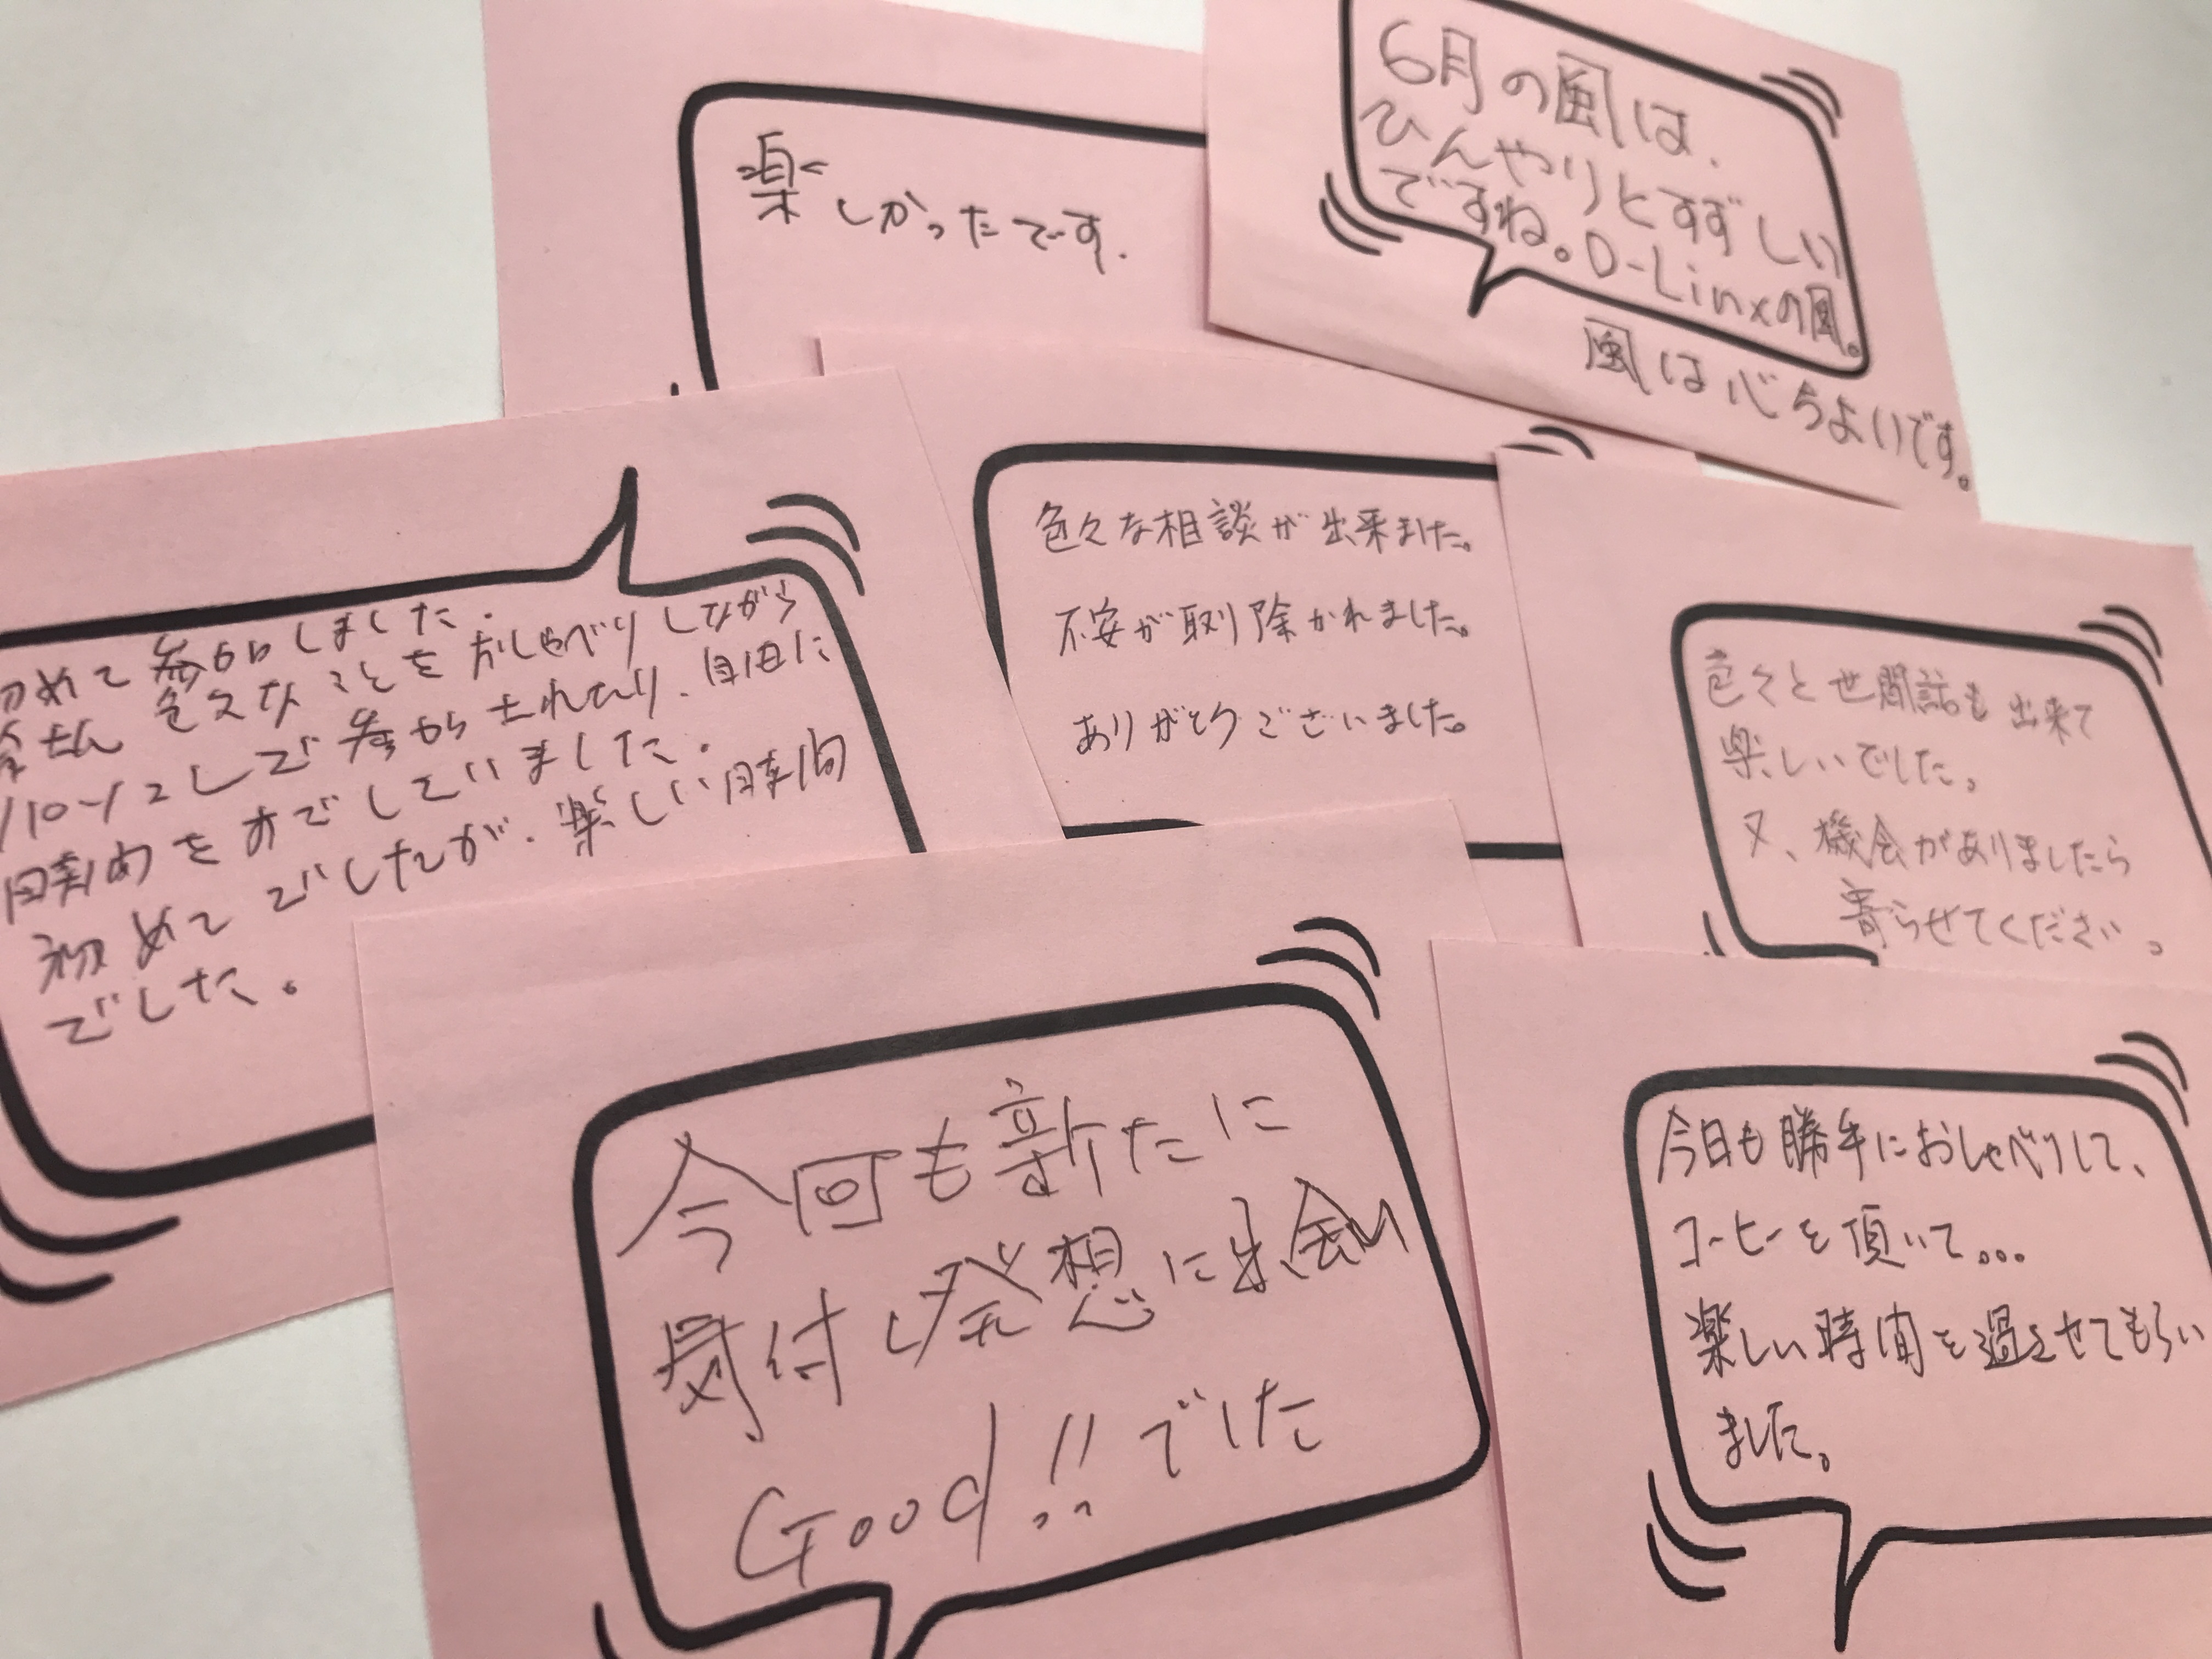 楽しかったです.
6月の風は、
ひんやりとすずしい
ですね。D-Linxの風。
風は心ちよいです。
初めて参加しました.
色々なことをおしゃべりしながら
自由に
していました.
初めてでしたが、楽しい時間
でした。
色々な相談が出来ました。
不安が取り除かれました。
ありがとうございました。
色々と世間話も出来て
楽しいでした。
又、機会がありましたら
寄らせてください。
今回も新たに
気付し発想に出会い
Good!!でした
今日も勝手におしゃべりして、
コーヒーを頂いて。。。
楽しい時間を過させてもらい
ました。